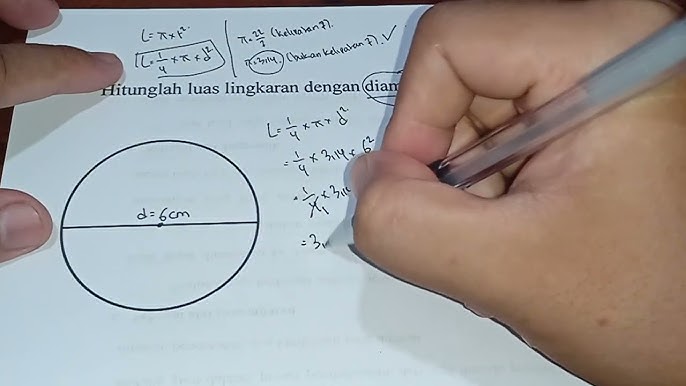 L = π × r²
L = 1/4 × π × d²
π = 22/7 (kelipatan 7).
π = 3,14. (bukan kelipatan 7). ✓
Hitunglah luas lingkaran dengan
d = 6 cm
L = 1/4 × π × d²
= 1/4 × 3,14 × 6²
= 1/4 1 × 3,14
= 3,